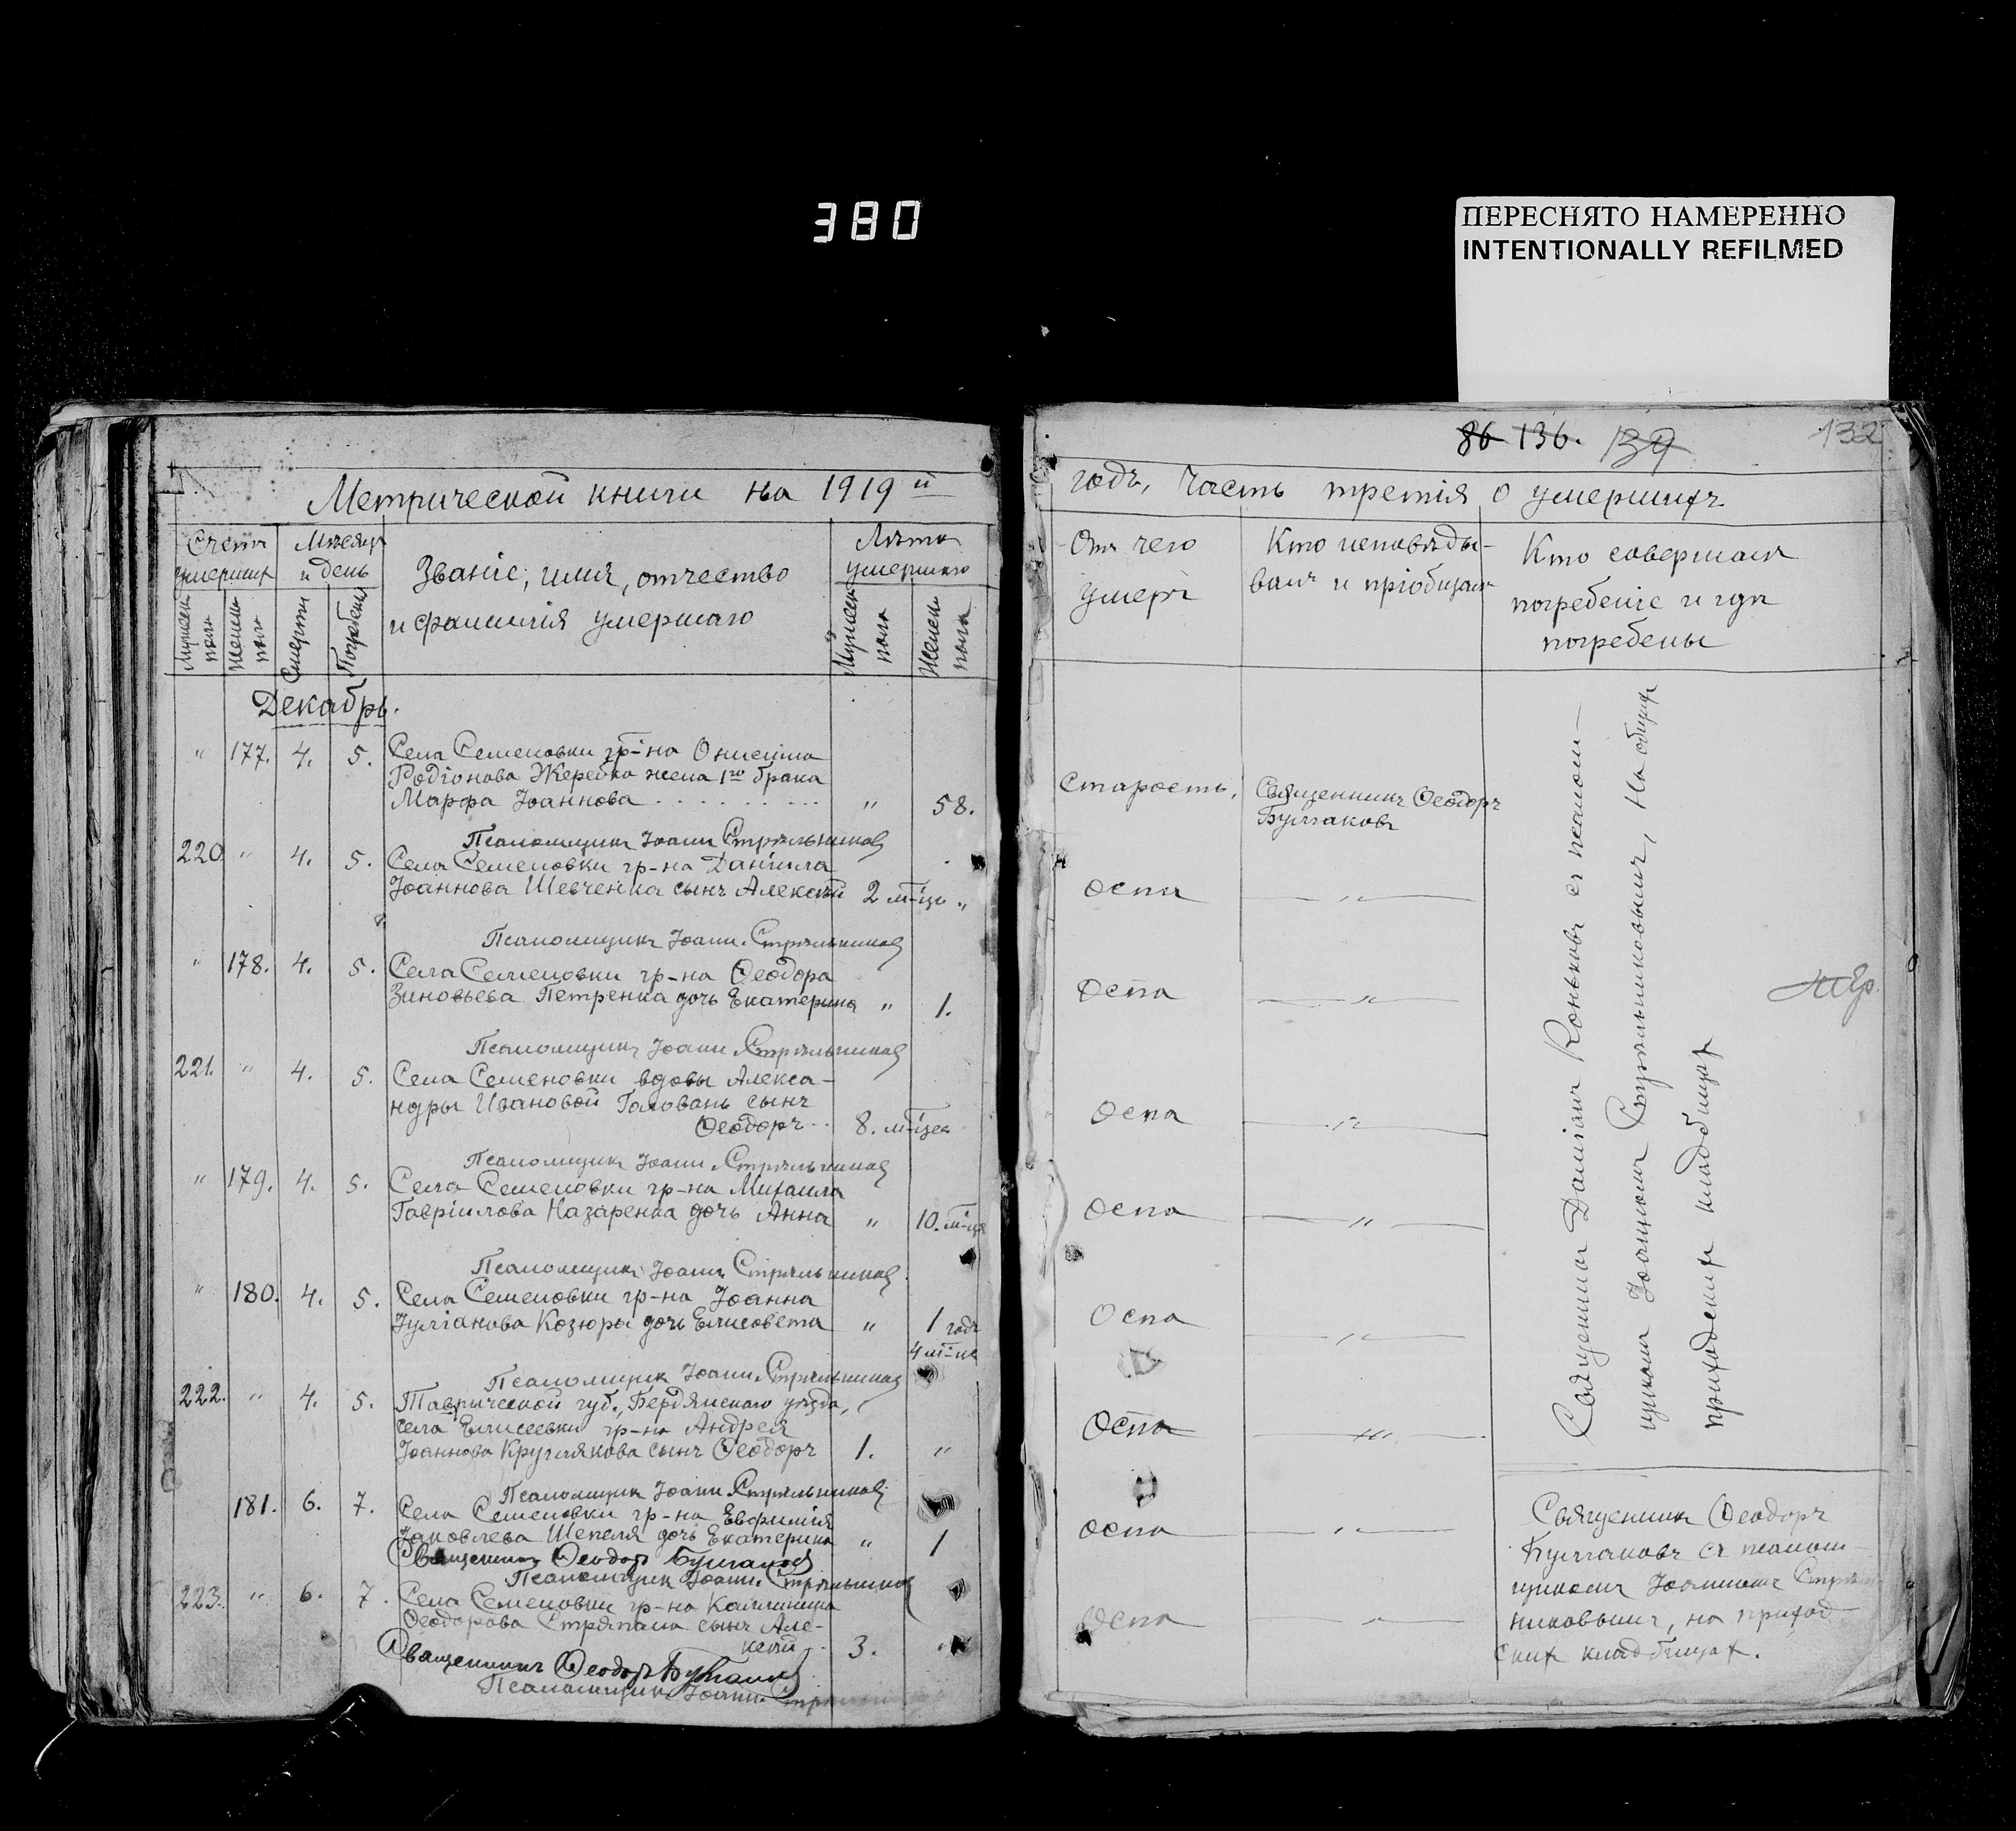 380
ПЕРЕСНЯТО НАМЕРЕННО
INTENTIONALLY REFILMED
Метрической книги на 1919 й
Счетъ умершихъ
Мѣсяцъ и день
Званіе, имя, отчество
и фамилія умершаго
Лѣта умершаго
Мужеск. пола
Женск. пола
Смерти
Погребенія
Мужеск. пола
Женск. пола
Декабрь.
" 177. 4. 5. Села Семеновки гр-на Онисима
Родіонова Жеребка жена 1го брака
Марфа Іоаннова . . . . . . . . . " 58.
Псаломщикъ Іоаннъ Стрѣльниковъ
220 " 4. 5. Села Семеновки гр-на Даніила
Іоаннова Шевченка сынъ Алексѣй 2 м-ца "
Псаломщикъ Іоаннъ Стрѣльниковъ
" 178. 4. 5. Села Семеновки гр-на Ѳеодора
Зиновьева Петренка дочь Екатерина " 1.
Псаломщикъ Іоаннъ Стрѣльниковъ
221. " 4. 5. Села Семеновки вдовы Алекса-
ндры Ивановой Головань сынъ
Ѳеодоръ . . 8. м-цев
Псаломщикъ Іоаннъ Стрѣльниковъ
" 179. 4. 5. Села Семеновки гр-на Михаила
Гавріилова Назаренка дочь Анна " 10. м-цев
Псаломщикъ Іоаннъ Стрѣльниковъ
" 180. 4. 5. Села Семеновки гр-на Іоанна
Іуліанова Козюры дочь Елисавета " 1 годъ
4 м-ца
Псаломщикъ Іоаннъ Стрѣльниковъ
222. " 4. 5. Таврической губ., Бердянскаго уѣзда,
села Елисеевки гр-на Андрея
Іоаннова Круглякова сынъ Ѳеодоръ 1. "
Псаломщикъ Іоаннъ Стрѣльниковъ
181. 6. 7. Села Семеновки гр-на Евфимія
Іаковлева Шепеля дочь Екатерина " 1
Священникъ Ѳеодоръ Булгаковъ
Псаломщикъ Іоаннъ Стрѣльниковъ
223. " 6. 7. Села Семеновки гр-на Каллиника
Ѳеодорова Стряпана сынъ Але-
ксѣй . 3. "
Священникъ Ѳеодоръ Булгаковъ
Псаломщикъ Іоаннъ
86 136. 139 132
годъ, часть третія о умершихъ
Отъ чего умеръ
Кто исповѣды-
валъ и пріобщалъ
Кто совершалъ
погребеніе и гдѣ
погребены
Старость. Священникъ Ѳеодоръ
Булгаковъ
Оспа "
Оспа "
Оспа "
Оспа "
Оспа "
Оспа "
Оспа "
Оспа "
Священникъ Даніилъ Коньковъ съ псалом-
щикомъ Іоанномъ Стрѣльниковымъ, на общихъ
приходскихъ кладбищахъ
Священникъ Ѳеодоръ
Булгаковъ съ псалом-
щикомъ Іоанномъ Стрѣль-
никовымъ, на приход-
скихъ кладбищахъ.